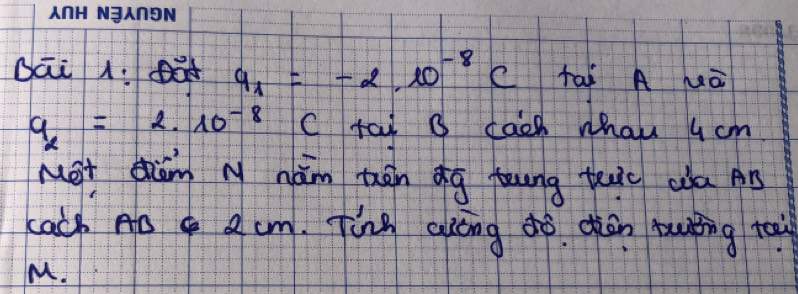 NGUYỄN HUY
Bài 1: Đặt q₁ = -2.10⁻⁸ C tại A và
q₂ = 2.10⁻⁸ C tại B cách nhau 4 cm.
Một điểm N nằm trên đg trung trực của AB
cách AB 2 cm. Tính cường độ điện trường tại
M.